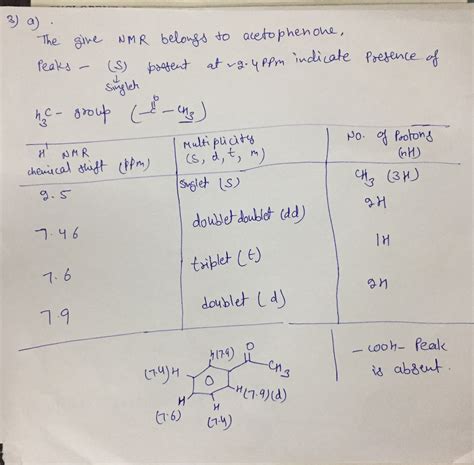 3) a) .
The give NMR belongs to acetophenone,
Peaks - (S) present at ~2.4 ppm indicate Presence of
Singlet
H3C- group ( -C-CH3 )
O
H' NMR chemical shift (ppm) | Multiplicity (S, d, t, m) | No. of Protons (nH)
2.5 | Singlet (S) | CH3 (3H)
7.46 | doublet doublet (dd) | 2H
7.6 | triplet (t) | 1H
7.9 | doublet (d) | 2H
H(7.9) O
(7.4)H CH3
H(7.9)(d)
H H
(7.6) (7.4)
- COOH - Peak
is absent.